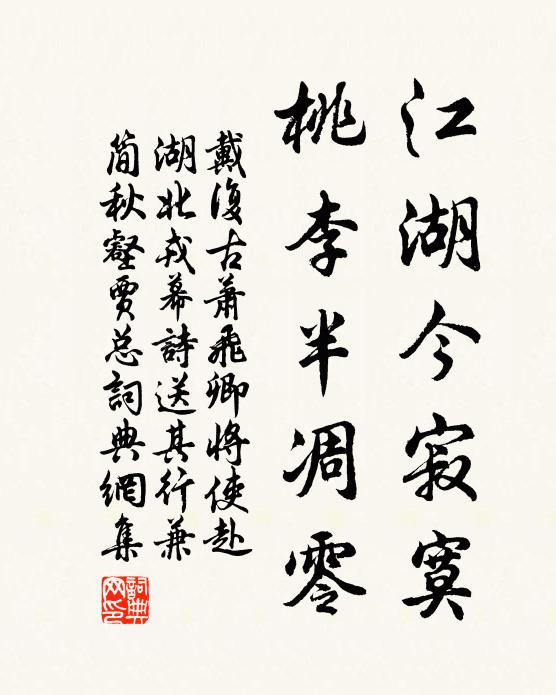 江湖今寂寞
桃李半凋零
戴復古蕭飛卿將使赴
湖北戎幕詩送其行兼
简秋壑賈总詞典網集
詞典網印